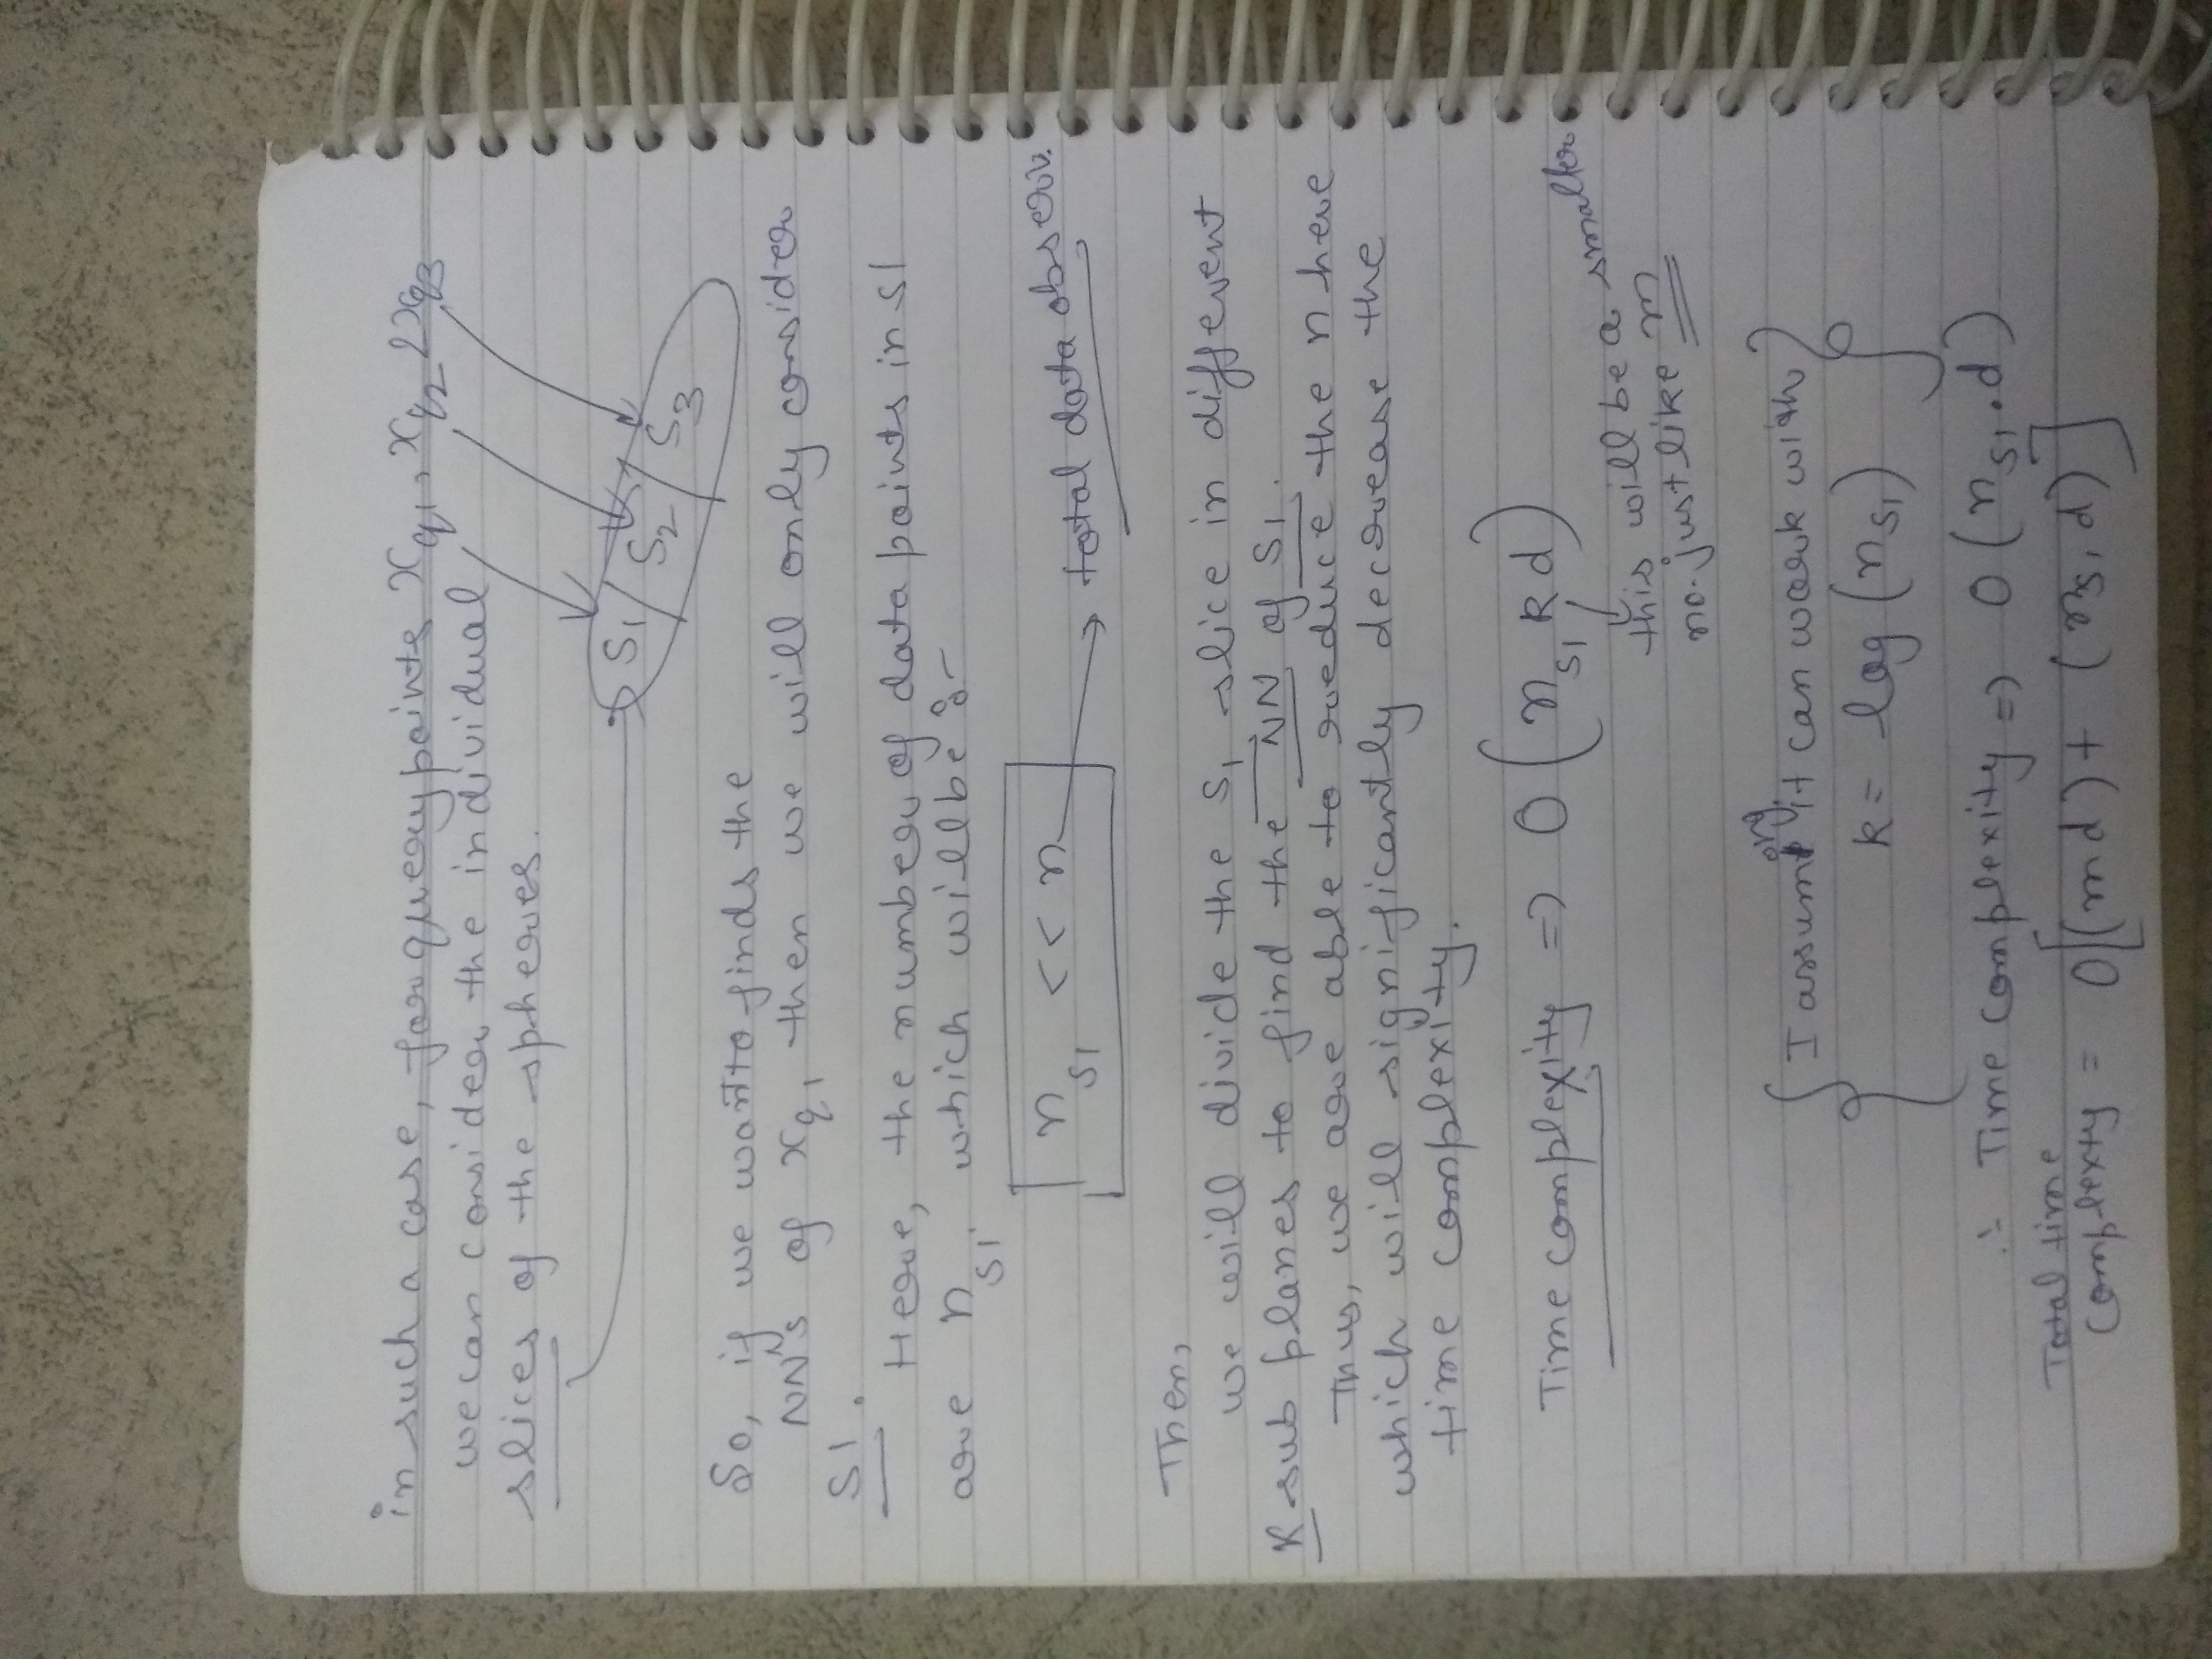 in such a case, for query points xq1, xq2 & xq3
we can consider the individual
slices of the spheres.
S1 S2 S3
So, if we want to finds the
NN's of xq1 then we will only consider
S1.
Here, the number of data points in S1
are nS1 which will be :-
nS1 << n → total data observ.
Then,
we will divide the S1 slice in different
K sub planes to find the NN of S1.
Thus, we are able to reduce the n here
which will significantly decrease the
time complexity.
Time complexity => O(nS1 k d)
this will be a smaller
no. just like m
{I assuming it can work with
k = log(nS1)}
∴ Time complexity => O(nS1.d)
Total time
complexty = O[(md) + (nS1 d)]